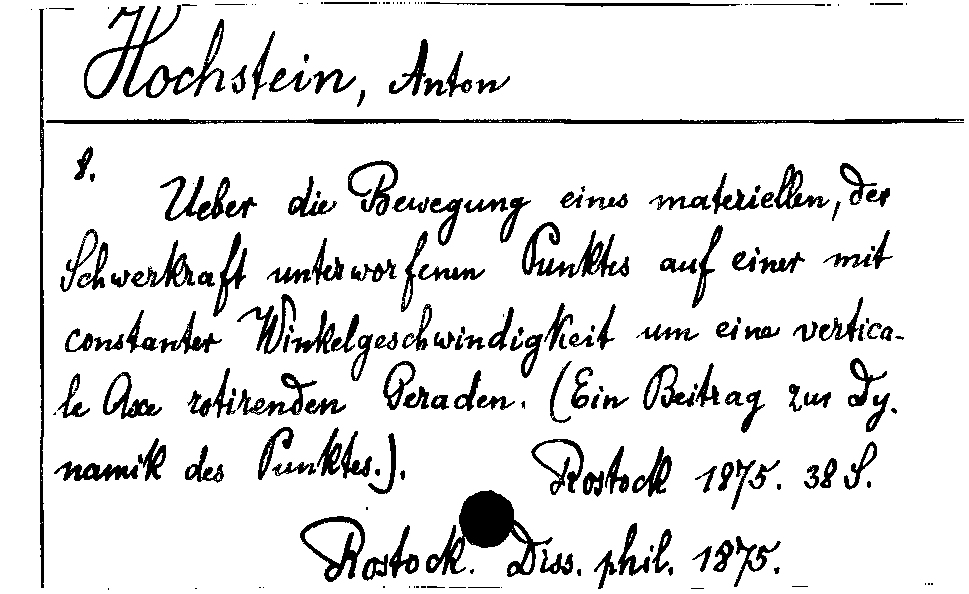 Hochstein, Anton
8.
Ueber die Bewegung eines materiellen, der
Schwerkraft unterworfenen Punktes auf einer mit
constanter Winkelgeschwindigkeit um eine vertica-
le Axe rotirenden Geraden. (Ein Beitrag zur Dy.
namik des Punktes.). Rostock 1875. 38 S.
Rostock. Diss. phil. 1875.